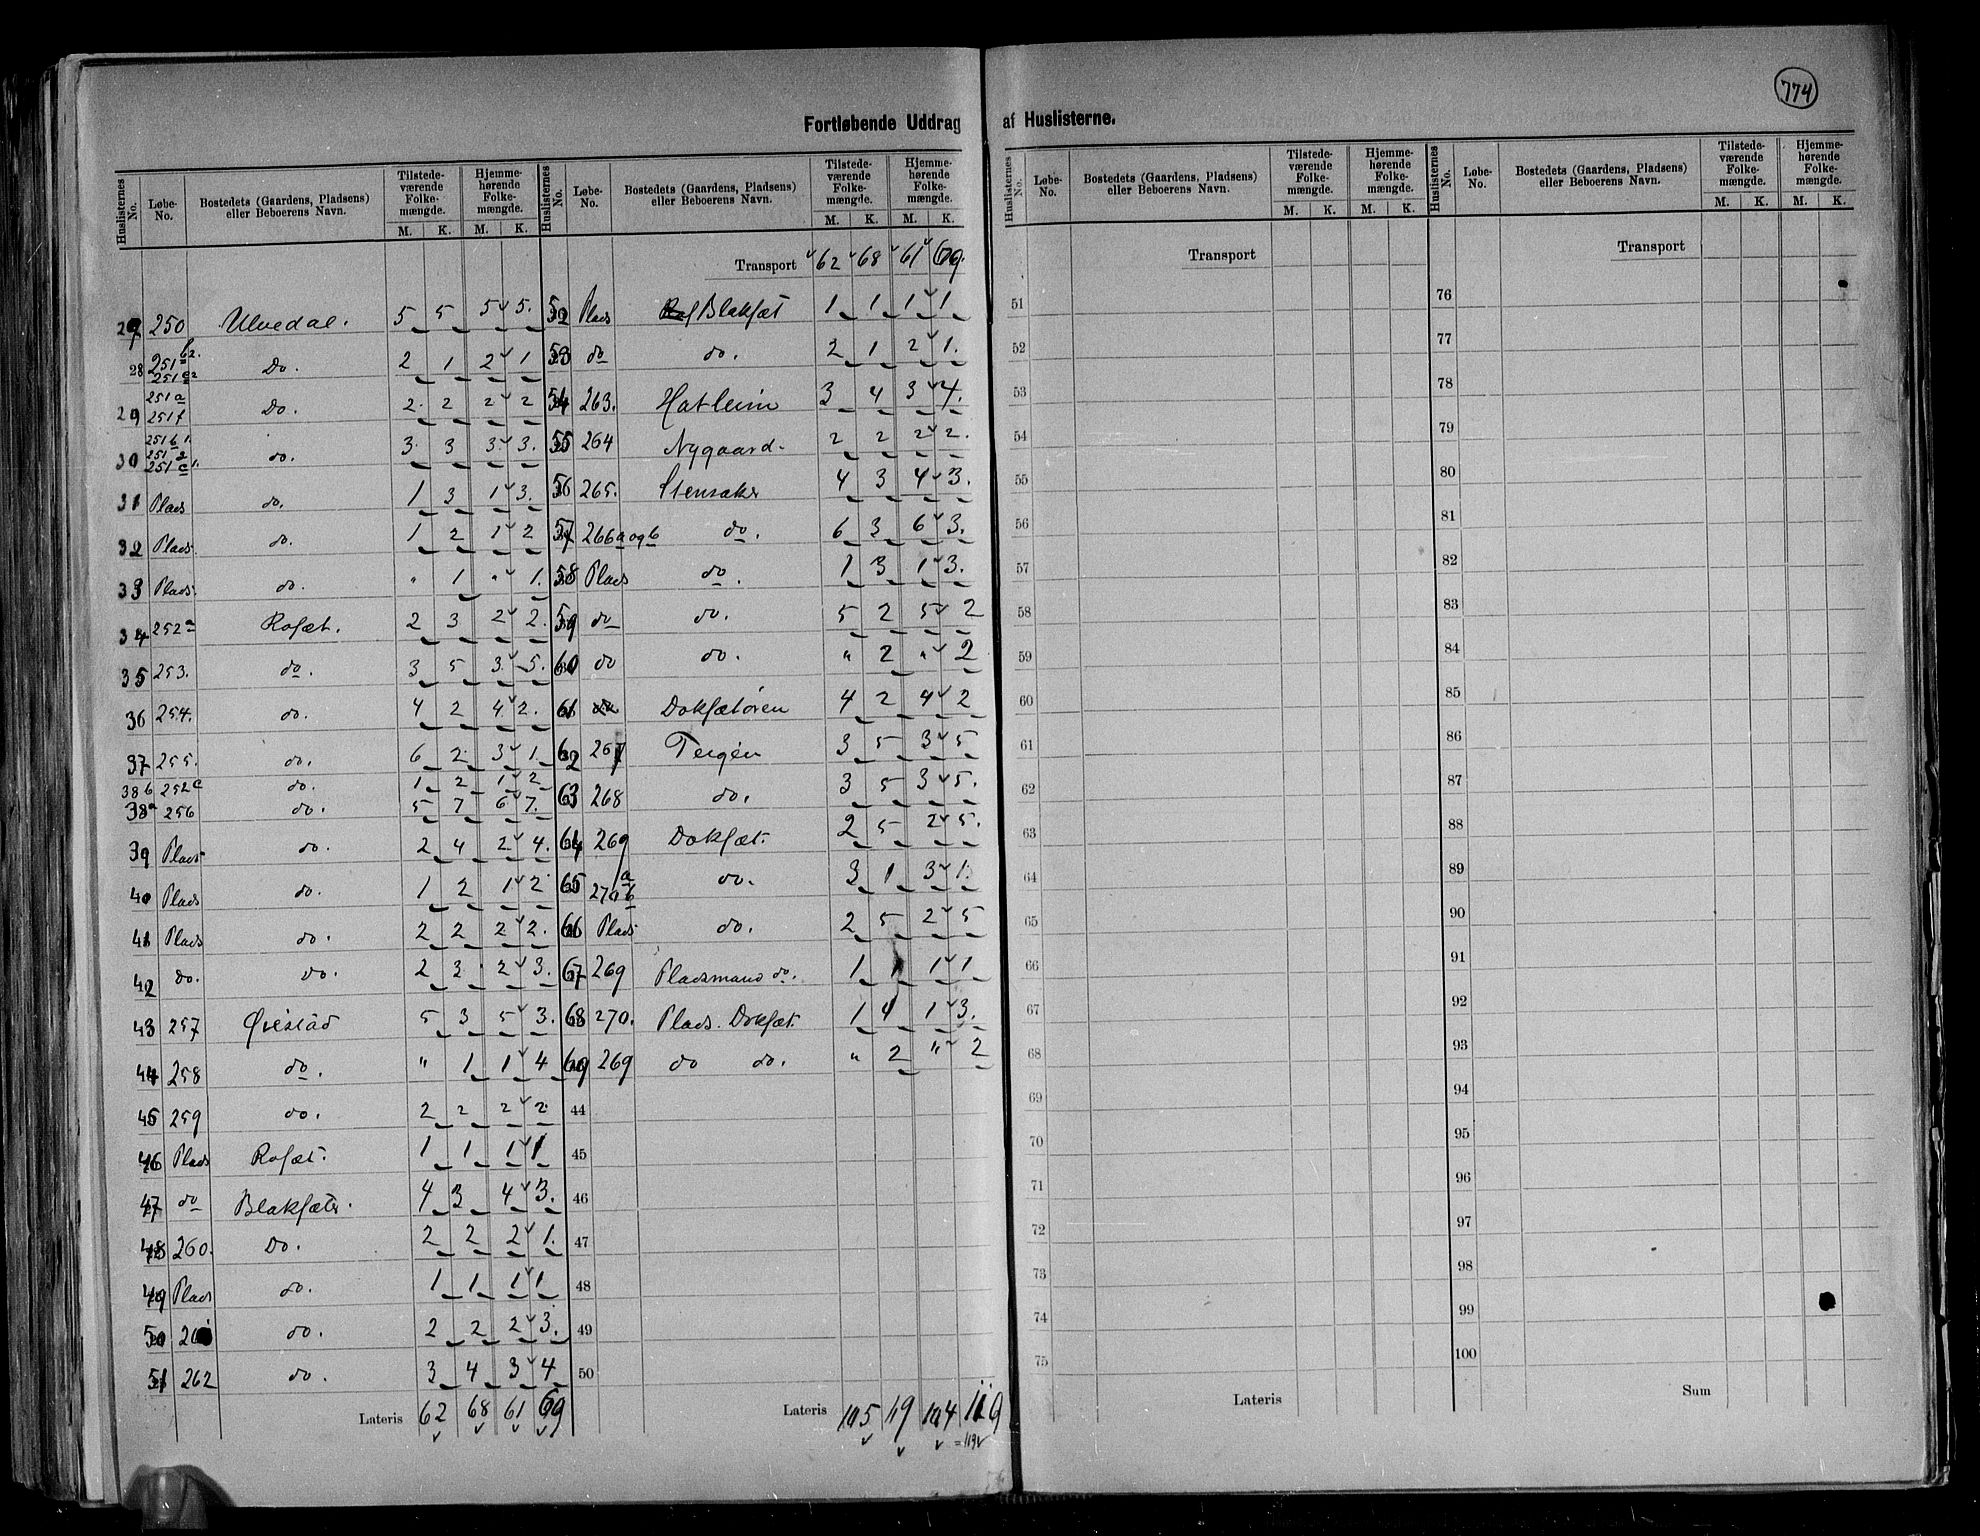 774
Fortløbende Uddrag af Huslisterne.
Huslisternes No. Løbe-No. Bostedets (Gaardens, Pladsens) eller Beboerens Navn. Tilstede-værende Folke-mængde. Hjemme-hørende Folke-mængde. M. K. M. K.
27 250 Ulvedal. 5 5 5 5.
28 251 b2. 251 c2 Do. 2 1 2 1
29 251 a 251 f Do. 2 2 2 2
30 251 b 1. 251 c 1. do. 3 3 3 3.
31 Plads do. 1 3 1 3.
32 Plads. do. 1 2 1 2
33 Plads. do. " 1 " 1.
34 252 a Rosæt. 2 3 2 2.
35 253. do. 3 5 3 5.
36 254. do. 4 2 4 2.
37 255. do. 6 2 3 1.
38 b 252 c do. 1 2 1 2
38 a 256 do. 5 7 6 7.
39 Plads do. 2 4 2 4.
40 Plads do. 1 2 1 2
41 Plads do. 2 2 2 2.
42 do. do. 2 3 2 3.
43 257 Øiestad 5 3 5 3.
44 258 do. " 1 1 4
45 259 do. 2 2 2 2
46 Plads Rosæt. 1 1 1 1
47 do Blaksæter. 4 3 4 3.
48 260. Do. 2 2 2 1.
49 Plads do. 1 1 1 1
50 do. 2 2 2 3.
51 262 do. 3 4 3 4
Lateris 62 68 61 69
Huslisternes No. Løbe-No. Bostedets (Gaardens, Pladsens) eller Beboerens Navn. Tilstede-værende Folke-mængde. Hjemme-hørende Folke-mængde. M. K. M. K.
Transport 62 68 61 69.
52 Plads Blaksæt 1 1 1 1
53 do do. 2 1 2 1.
54 263. Hatleim 3 4 3 4.
55 264 Nygaard. 2 2 2 2.
56 265. Stensaker 4 3 4 3.
57 266 a og b do. 6 3 6 3.
58 Plads do. 1 3 1 3.
59 do do. 5 2 5 2
60 do do. " 2 " 2
61 do Doksætøren 4 2 4 2
62 267 Teigen 3 5 3 5
63 268 do. 3 5 3 5.
64 269 Doksæt. 2 5 2 5.
65 270 a b do. 3 1 3 1.
66 Plads do. 2 5 2 5
67 269 Pladsmand do. 1 1 1 1
68 270. Plads. Doksæt. 1 4 1 3.
69 269 do do. " 2 " 2
44
45
46
47
48
49
50
Lateris 105 119 104 119
= 119
Huslisternes No. Løbe-No. Bostedets (Gaardens, Pladsens) eller Beboerens Navn. Tilstede-værende Folke-mængde. Hjemme-hørende Folke-mængde. M. K. M. K.
Transport
51
52
53
54
55
56
57
58
59
60
61
62
63
64
65
66
67
68
69
70
71
72
73
74
75
Lateris
Huslisternes No. Løbe-No. Bostedets (Gaardens, Pladsens) eller Beboerens Navn. Tilstede-værende Folke-mængde. Hjemme-hørende Folke-mængde. M. K. M. K.
Transport
76
77
78
79
80
81
82
83
84
85
86
87
88
89
90
91
92
93
94
95
96
97
98
99
100
Sum